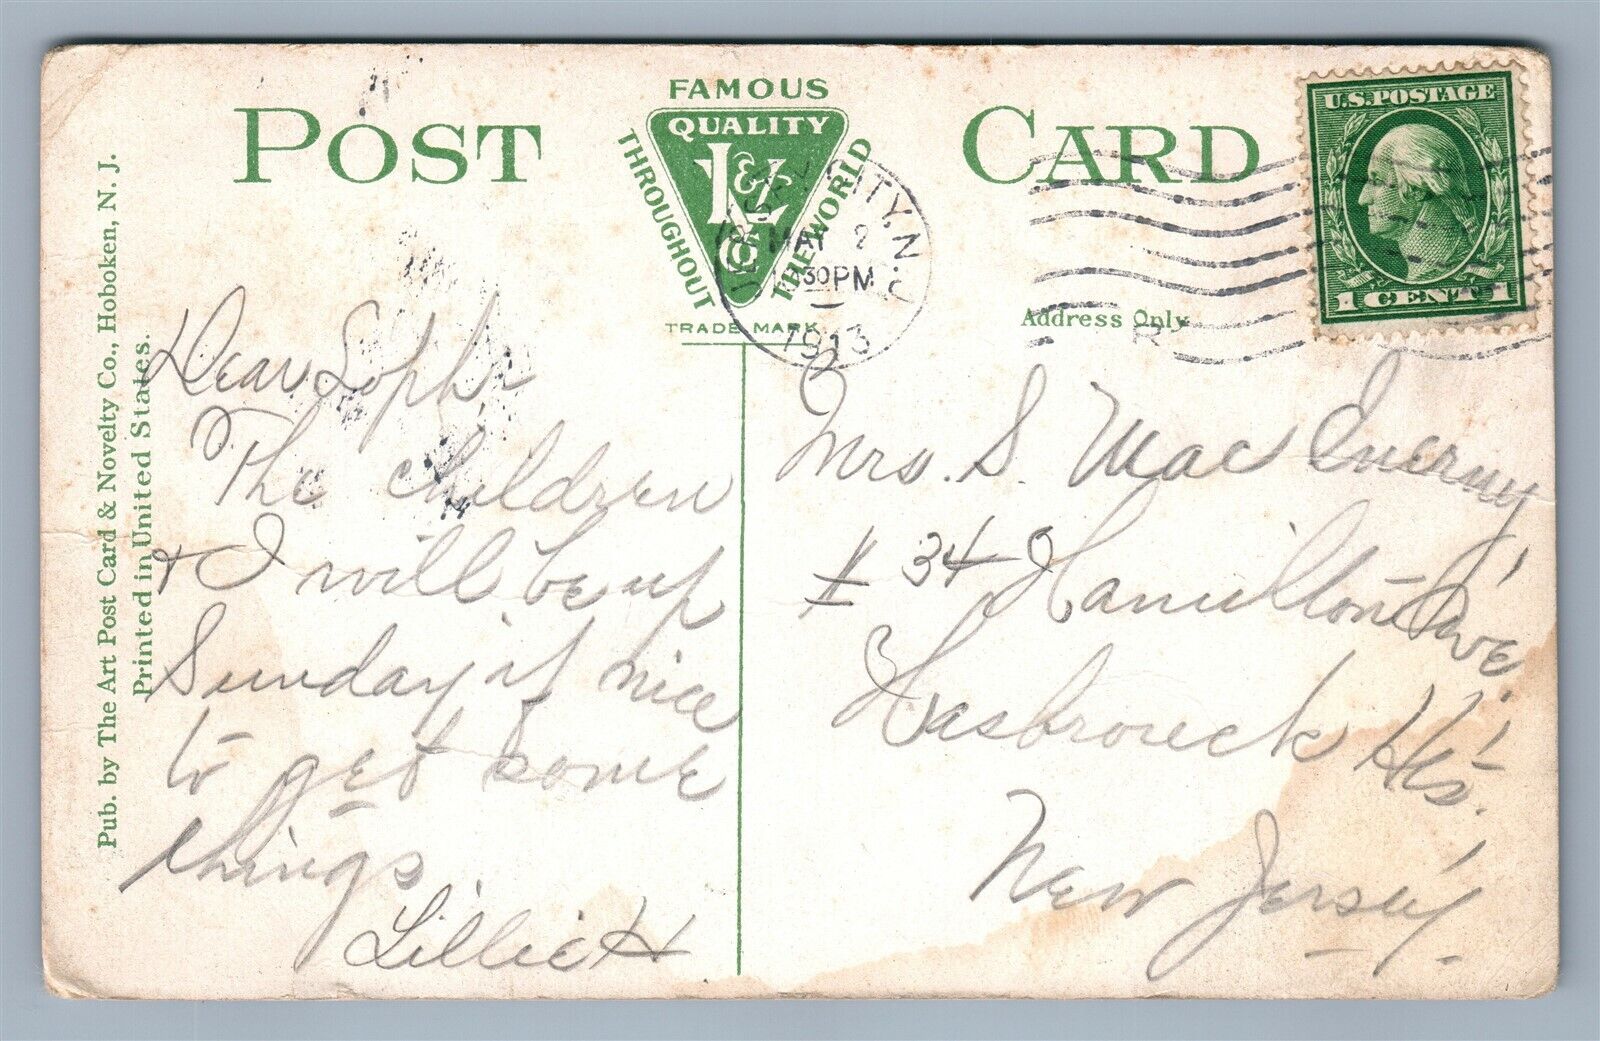 POST CARD
FAMOUS
QUALITY
THROUGHOUT
THE WORLD
L & Z
Co
TRADE MARK
U.S. POSTAGE
1 CENT 1
CITY, N.J.
MAY 2
30 PM
1913
R
Address Only
Pub. by The Art Post Card & Novelty Co., Hoboken, N. J.
Printed in United States.
Dear Soph
The children
& I will be up
Sunday if nice
to get some
things
Lillie H
Mrs. S. Mac Enerny
# 34 Hamilton Ave.
Hasbrouck Hts.
New Jersey.